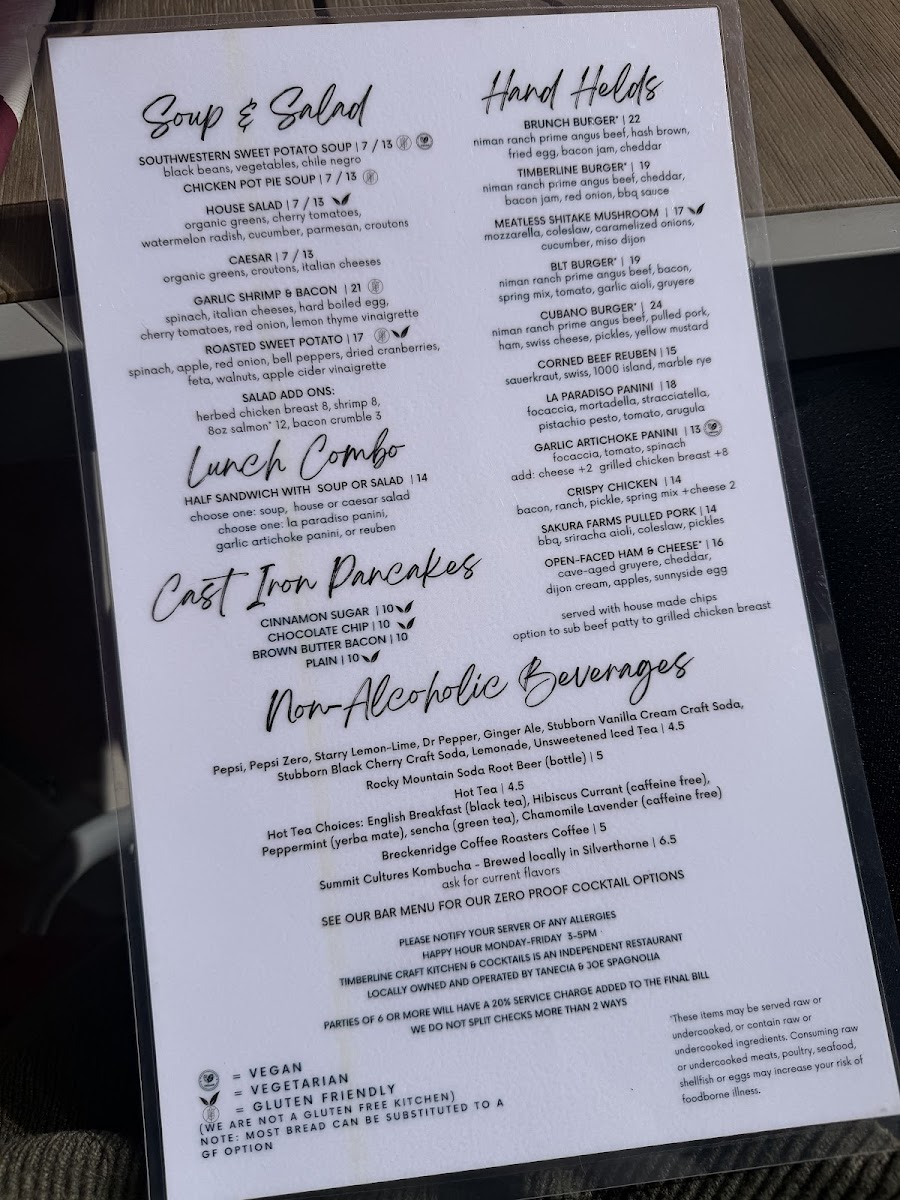 Soup & Salad
SOUTHWESTERN SWEET POTATO SOUP | 7 / 13
black beans, vegetables, chile negro
CHICKEN POT PIE SOUP | 7 / 13
HOUSE SALAD | 7 / 13
organic greens, cherry tomatoes,
watermelon radish, cucumber, parmesan, croutons
CAESAR | 7 / 13
organic greens, croutons, italian cheeses
GARLIC SHRIMP & BACON | 21
spinach, italian cheeses, hard boiled egg,
cherry tomatoes, red onion, lemon thyme vinaigrette
ROASTED SWEET POTATO | 17
spinach, apple, red onion, bell peppers, dried cranberries,
feta, walnuts, apple cider vinaigrette
SALAD ADD ONS:
herbed chicken breast 8, shrimp 8,
8oz salmon* 12, bacon crumble 3
Lunch Combo
HALF SANDWICH WITH SOUP OR SALAD | 14
choose one: soup, house or caesar salad
choose one: la paradiso panini,
garlic artichoke panini, or reuben
Cast Iron Pancakes
CINNAMON SUGAR | 10
CHOCOLATE CHIP | 10
BROWN BUTTER BACON | 10
PLAIN | 10
Hand Helds
BRUNCH BURGER* | 22
niman ranch prime angus beef, hash brown,
fried egg, bacon jam, cheddar
TIMBERLINE BURGER* | 19
niman ranch prime angus beef, cheddar,
bacon jam, red onion, bbq sauce
MEATLESS SHITAKE MUSHROOM | 17
mozzarella, coleslaw, caramelized onions,
cucumber, miso dijon
BLT BURGER* | 19
niman ranch prime angus beef, bacon,
spring mix, tomato, garlic aioli, gruyere
CUBANO BURGER* | 24
niman ranch prime angus beef, pulled pork,
ham, swiss cheese, pickles, yellow mustard
CORNED BEEF REUBEN | 15
sauerkraut, swiss, 1000 island, marble rye
LA PARADISO PANINI | 18
focaccia, mortadella, stracciatella,
pistachio pesto, tomato, arugula
GARLIC ARTICHOKE PANINI | 13
focaccia, tomato, spinach
add: cheese +2 grilled chicken breast +8
CRISPY CHICKEN | 14
bacon, ranch, pickle, spring mix +cheese 2
SAKURA FARMS PULLED PORK | 14
bbq, sriracha aioli, coleslaw, pickles
OPEN-FACED HAM & CHEESE* | 16
cave-aged gruyere, cheddar,
dijon cream, apples, sunnyside egg
served with house made chips
option to sub beef patty to grilled chicken breast
Non-Alcoholic Beverages
Pepsi, Pepsi Zero, Starry Lemon-Lime, Dr Pepper, Ginger Ale, Stubborn Vanilla Cream Craft Soda,
Stubborn Black Cherry Craft Soda, Lemonade, Unsweetened Iced Tea | 4.5
Rocky Mountain Soda Root Beer (bottle) | 5
Hot Tea | 4.5
Hot Tea Choices: English Breakfast (black tea), Hibiscus Currant (caffeine free),
Peppermint (yerba mate), sencha (green tea), Chamomile Lavender (caffeine free)
Breckenridge Coffee Roasters Coffee | 5
Summit Cultures Kombucha - Brewed locally in Silverthorne | 6.5
ask for current flavors
SEE OUR BAR MENU FOR OUR ZERO PROOF COCKTAIL OPTIONS
PLEASE NOTIFY YOUR SERVER OF ANY ALLERGIES
HAPPY HOUR MONDAY-FRIDAY 3-5PM
TIMBERLINE CRAFT KITCHEN & COCKTAILS IS AN INDEPENDENT RESTAURANT
LOCALLY OWNED AND OPERATED BY TANECIA & JOE SPAGNOLIA
PARTIES OF 6 OR MORE WILL HAVE A 20% SERVICE CHARGE ADDED TO THE FINAL BILL
WE DO NOT SPLIT CHECKS MORE THAN 2 WAYS
= VEGAN
= VEGETARIAN
= GLUTEN FRIENDLY
(WE ARE NOT A GLUTEN FREE KITCHEN)
NOTE: MOST BREAD CAN BE SUBSTITUTED TO A
GF OPTION
*These items may be served raw or
undercooked, or contain raw or
undercooked ingredients. Consuming raw
or undercooked meats, poultry, seafood,
shellfish or eggs may increase your risk of
foodborne illness.